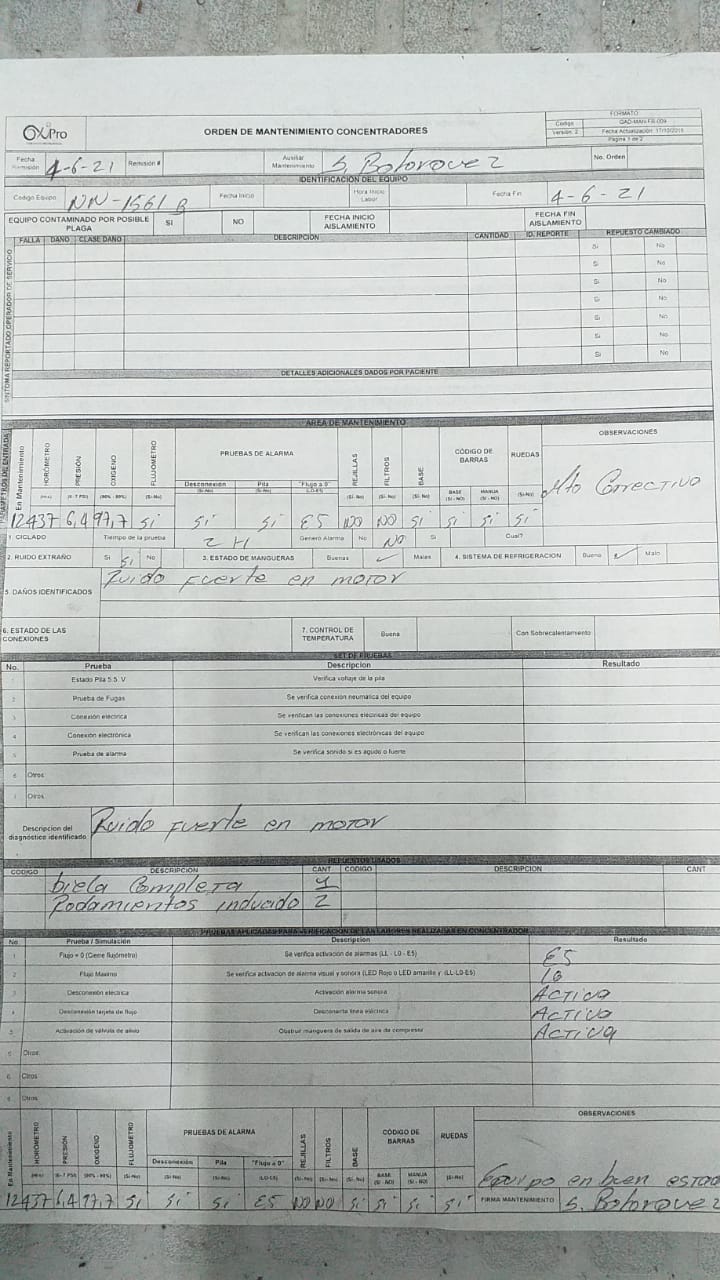 OxiPro
ORDEN DE MANTENIMIENTO CONCENTRADORES
FORMATO
Código GAD-MAN-FR-009
Versión: 2 Fecha Actualización: 17/10/2015
Página 1 de 2
Fecha Remisión 4-6-21 Remisión # Auxiliar Mantenimiento S. Bohorquez No. Orden
IDENTIFICACIÓN DEL EQUIPO
Código Equipo NN-1561 B Fecha Inicio Hora Inicio Labor Fecha Fin 4-6-21
EQUIPO CONTAMINADO POR POSIBLE PLAGA SI NO FECHA INICIO AISLAMIENTO FECHA FIN AISLAMIENTO
SINTOMA REPORTADO OPERADOR DE SERVICIO
FALLA DAÑO CLASE DAÑO DESCRIPCIÓN CANTIDAD ID. REPORTE REPUESTO CAMBIADO
Si No
Si No
Si No
Si No
Si No
Si No
Si No
DETALLES ADICIONALES DADOS POR PACIENTE
ÁREA DE MANTENIMIENTO
PARÁMETROS DE ENTRADA
En Mantenimiento HORÓMETRO PRESIÓN OXIGENO FLUJOMETRO PRUEBAS DE ALARMA REJILLAS FILTROS BASE CÓDIGO DE BARRAS RUEDAS OBSERVACIONES
Desconexión Pila "Flujo a 0" BASE MANIJA
12437 6,4 97,7 Si Si Si E5 NO NO Si Si Si Si Mto Correctivo
1. CICLADO Tiempo de la prueba 2 H Generó Alarma No NO Si Cual?
2. RUIDO EXTRAÑO Si Si No 3. ESTADO DE MANGUERAS Buenas ✓ Malas 4. SISTEMA DE REFRIGERACIÓN Bueno ✓ Malo
5. DAÑOS IDENTIFICADOS Ruido fuerte en motor
6. ESTADO DE LAS CONEXIONES 7. CONTROL DE TEMPERATURA Buena Con Sobrecalentamiento
SET DE PRUEBAS
No. Prueba Descripcion Resultado
Estado Pila 5.5. V Verifica voltaje de la pila
2 Prueba de Fugas Se verifica conexión neumatica del equipo
3 Conexión eléctrica Se verifican las conexiones eléctricas del equipo
4 Conexión electrónica Se verifican las conexiones electrónicas del equipo
5 Prueba de alarma Se verifica sonido si es agudo o fuerte
6 Otros:
7 Otros:
Descripcion del diagnóstico identificado Ruido fuerte en motor
REPUESTOS USADOS
CÓDIGO DESCRIPCION CANT CÓDIGO DESCRIPCION CANT
biela Completa 1
Rodamientos inducido 2
PRUEBAS APLICADAS PARA VERIFICACIÓN DE LAS LABORES REALIZADAS EN CONCENTRADOR
No. Prueba / Simulación Descripcion Resultado
1 Flujo = 0 (Cierre flujómetro) Se verifica activación de alarmas (LL - L0 - E5) E5
2 Flujo Maximo Se verifica activacion de alarma visual y sonora (LED Rojo o LED amarillo y (LL-L0-E5) L0
3 Desconexión eléctrica Activación alarma sonora Activa
4 Desconexión tarjeta de flujo Desconecta linea eléctrica Activa
5 Activación de válvula de alivio Obstruir manguera de salida de aire de compresor Activa
6 Otros:
6 Otros
8 Otros
En Mantenimiento HORÓMETRO PRESIÓN OXIGENO FLUJOMETRO PRUEBAS DE ALARMA REJILLAS FILTROS BASE CÓDIGO DE BARRAS RUEDAS OBSERVACIONES
Desconexión Pila "Flujo a 0" BASE MANIJA
Equipo en buen estado
12437 6,4 97,7 Si Si Si E5 NO NO Si Si Si Si FIRMA MANTENIMIENTO S. Bohorquez